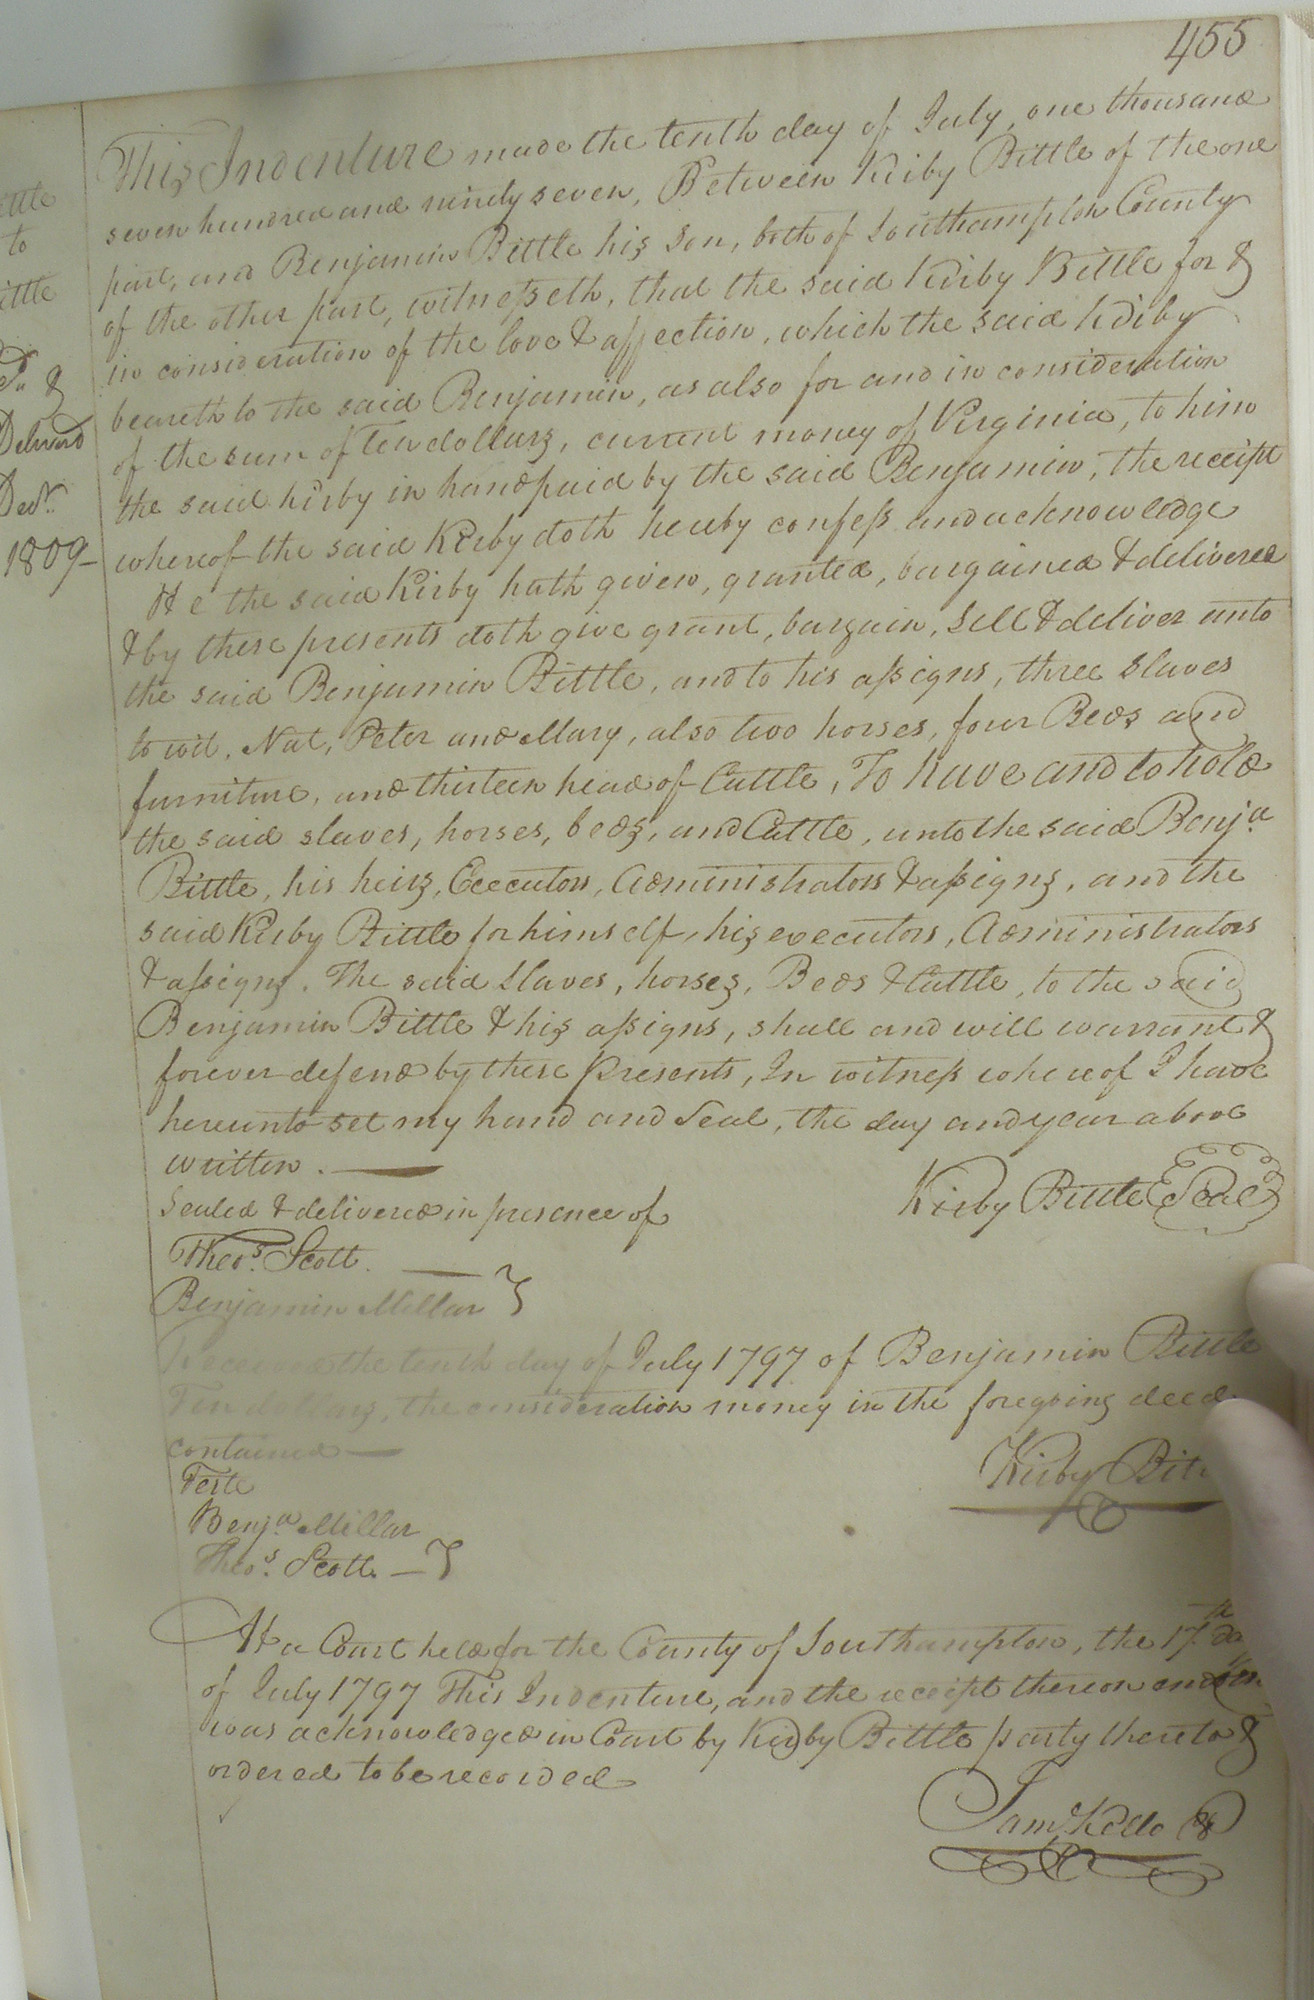 455
to
&
Deliver'd
Dec.r
1809
This Indenture made the tenth day of July, one thousand
seven hundred and ninety seven, Between Kirby Bittle of the one
part, and Benjamin Bittle his Son, both of Southampton County
of the other part, witnesseth, that the said Kirby Bittle for &
in consideration of the love & affection, which the said Kirby
beareth to the said Benjamin, as also for and in consideration
of the sum of Ten dollars, current money of Virginia, to him
the said Kirby in hand paid by the said Benjamin, the receipt
whereof the said Kirby doth hereby confess and acknowledge
He the said Kirby hath given, granted, bargained & delivered
& by these presents doth give grant, bargain, Sell & deliver unto
the said Benjamin Bittle, and to his assigns, three Slaves
to wit, Nat, Peter and Mary, also two horses, four Beds and
furniture, and thirteen head of Cattle, To have and to hold
the said slaves, horses, beds, and Cattle, unto the said Benj.a
Bittle, his heirs, Executors, Administrators & assigns, and the
said Kirby Bittle for himself, his executors, Administrators
& assigns. The said Slaves, horses, Beds & Cattle, to the said
Benjamin Bittle & his assigns, shall and will warrant &
forever defend by these Presents, In witness whereof I have
hereunto set my hand and Seal, the day and year above
written.
Kirby Bittle Seal
Sealed & delivered in presence of
Theo.s Scott
Benjamin Millar
Received the tenth day of July 1797 of Benjamin Bittle
Ten dollars, the consideration money in the foregoing deed
contained
Kirby
Teste
Benj.a Millar
Theo.s Scott
At a Court held for the County of Southampton, the 17.th
of July 1797 This Indenture, and the receipt thereon
was acknowledged in Court by Kirby Bittle party thereto &
ordered to be recorded
Sam.l Kello